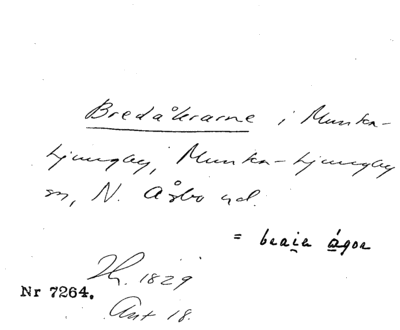 Bredåkrarne i Munka-
Ljungby, Munka-Ljungby
sn, N. Åsbo hd.
= braia ågor
1829
Nr 7264.
Ant 18.